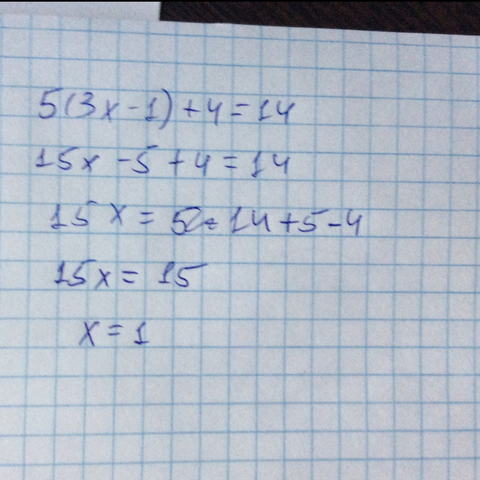 5(3x-1)+4=14
15x-5+4=14
15x=14+5-4
15x=15
x=1